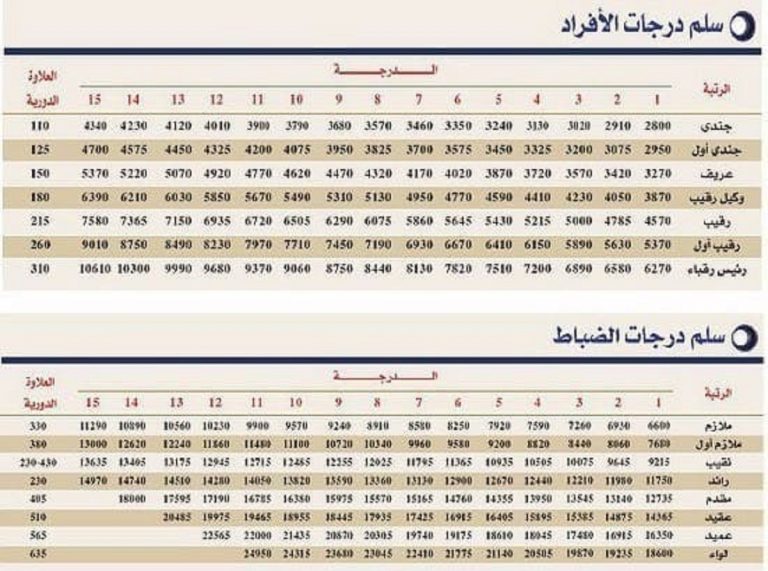 سلم درجات الأفراد
الرتبة الـدرجـة العلاوة الدورية
1 2 3 4 5 6 7 8 9 10 11 12 13 14 15
جندي 2800 2910 3020 3130 3240 3350 3460 3570 3680 3790 3900 4010 4120 4230 4340 110
جندي أول 2950 3075 3200 3325 3450 3575 3700 3825 3950 4075 4200 4325 4450 4575 4700 125
عريف 3270 3420 3570 3720 3870 4020 4170 4320 4470 4620 4770 4920 5070 5220 5370 150
وكيل رقيب 3870 4050 4230 4410 4590 4770 4950 5130 5310 5490 5670 5850 6030 6210 6390 180
رقيب 4570 4785 5000 5215 5430 5645 5860 6075 6290 6505 6720 6935 7150 7365 7580 215
رقيب أول 5370 5630 5890 6150 6410 6670 6930 7190 7450 7710 7970 8230 8490 8750 9010 260
رئيس رقباء 6270 6580 6890 7200 7510 7820 8130 8440 8750 9060 9370 9680 9990 10300 10610 310
سلم درجات الضباط
الرتبة الـدرجـة العلاوة الدورية
1 2 3 4 5 6 7 8 9 10 11 12 13 14 15
ملازم 6600 6930 7260 7590 7920 8250 8580 8910 9240 9570 9900 10230 10560 10890 11290 330
ملازم أول 7680 8060 8440 8820 9200 9580 9960 10340 10720 11100 11480 11860 12240 12620 13000 380
نقيب 9215 9645 10075 10505 10935 11365 11795 12025 12255 12485 12715 12945 13175 13405 13635 230-430
رائد 11750 11980 12210 12440 12670 12900 13130 13360 13590 13820 14050 14280 14510 14740 14970 230
مقدم 12735 13140 13545 13950 14355 14760 15165 15570 15975 16380 16785 17190 17595 18000 405
عقيد 14365 14875 15385 15895 16405 16915 17425 17935 18445 18955 19465 19975 20485 510
عميد 16350 16915 17480 18045 18610 19175 19740 20305 20870 21435 22000 22565 565
لواء 18600 19235 19870 20505 21140 21775 22410 23045 23680 24315 24950 635